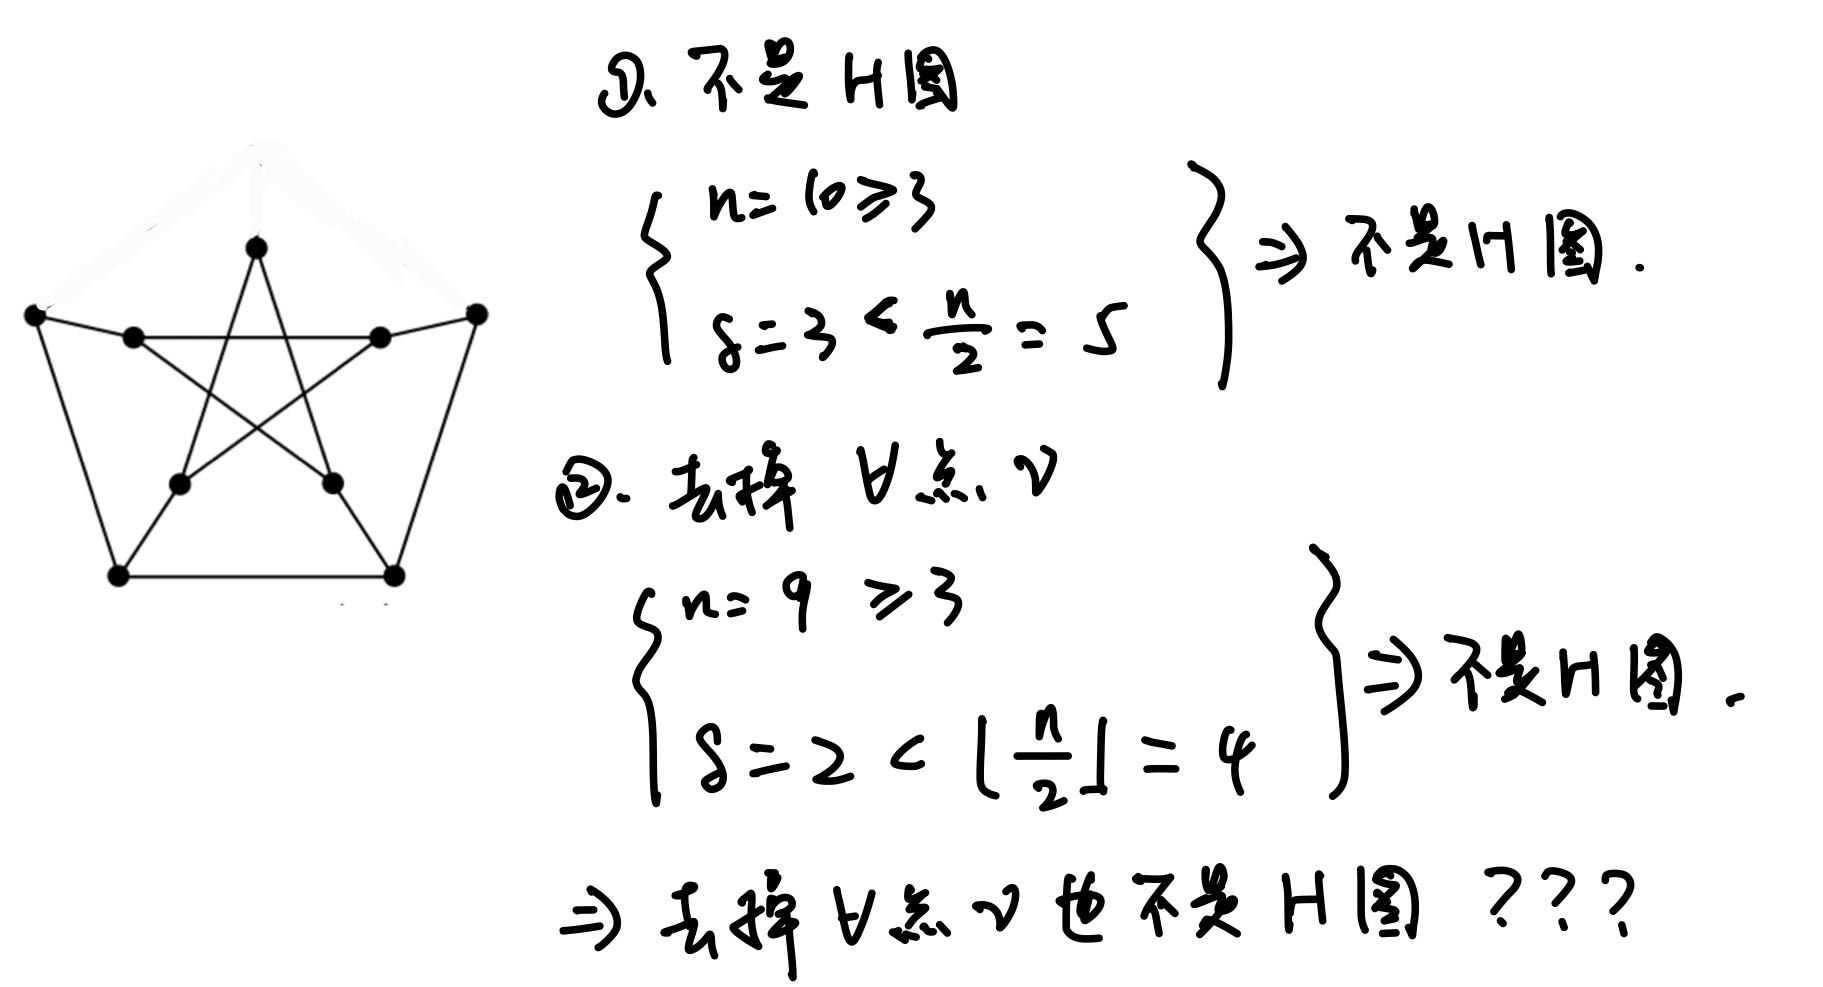 ①. 不是 H 图
n = 10 ≥ 3
δ = 3 < n/2 = 5
⇒ 不是 H 图.
②. 去掉 ∀ 点 v
n = 9 ≥ 3
δ = 2 < ⌊n/2⌋ = 4
⇒ 不是 H 图.
⇒ 去掉 ∀ 点 v 也不是 H 图 ???